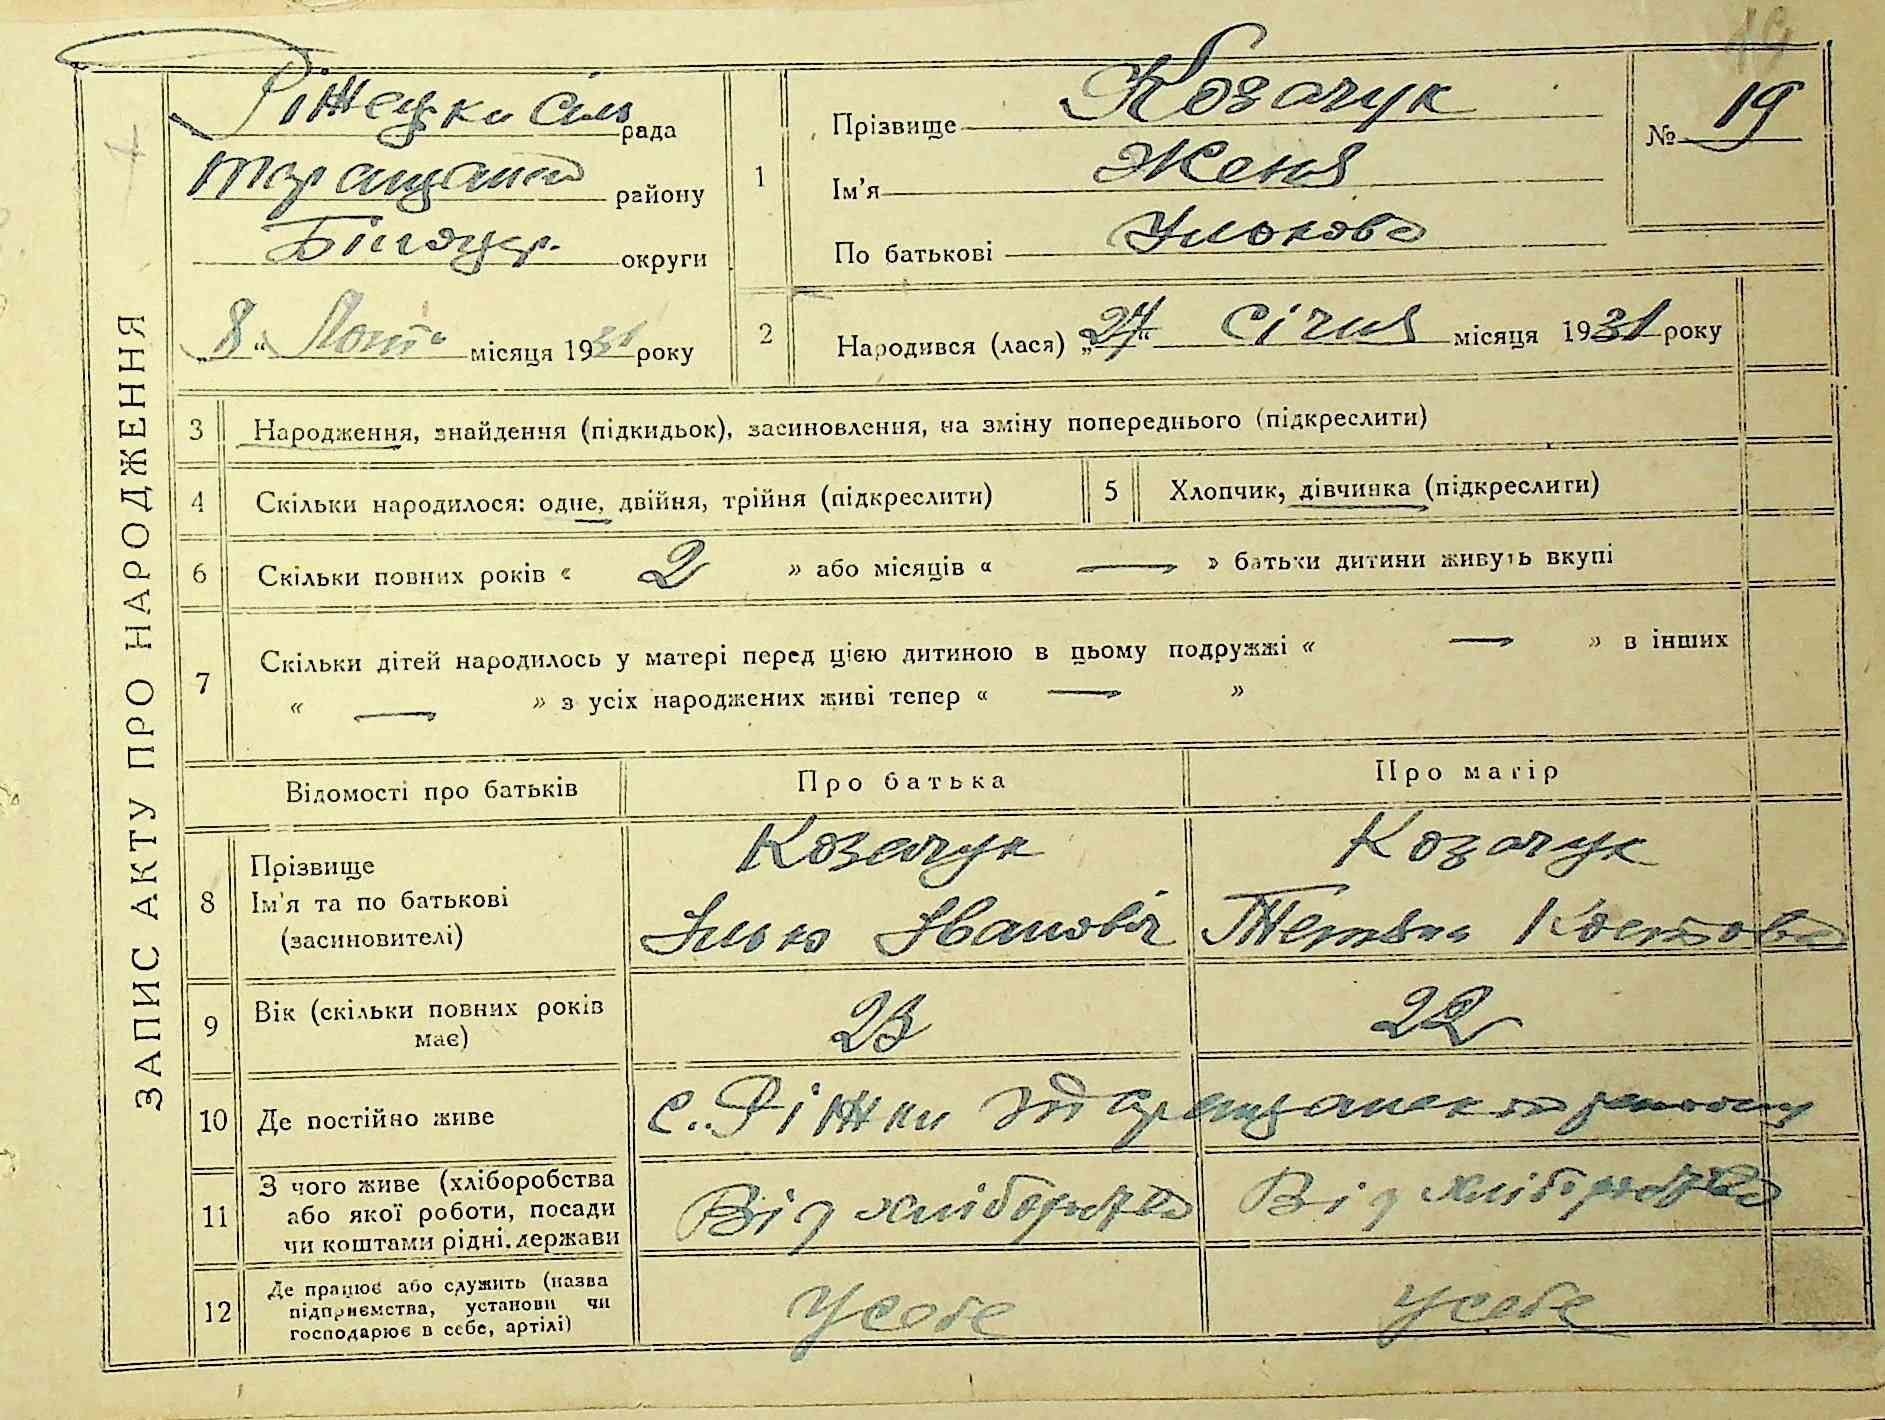 19
ЗАПИС АКТУ ПРО НАРОДЖЕННЯ
Ріжецка сіль рада
Таращанск району
Білоцер. округи
„8“ Лют. місяця 1931 року
1 Прізвище Козачук
Ім'я Женя
По батькові Улькова
№ 19
2 Народився (лася) „27“ Січня місяця 1931 року
3 Народження, знайдення (підкидьок), засиновлення, на зміну попереднього (підкреслити)
4 Скільки народилося: одне, двійня, трійня (підкреслити)
5 Хлопчик, дівчинка (підкреслити)
6 Скільки повних років « 2 » або місяців « — » батьки дитини живуть вкупі
7 Скільки дітей народилось у матері перед цією дитиною в цьому подружжі « — » в інших
« — » з усіх народжених живі тепер « — »
Відомості про батьків Про батька Про матір
8 Прізвище
Ім'я та по батькові
(засиновителі)
Козачук
Улько Іванович
Козачук
Тетяна Костова
9 Вік (скільки повних років
має)
23
22
10 Де постійно живе с. Ріжки Таращанского району
11 З чого живе (хліборобства
або якої роботи, посади
чи коштами рідні, держави
Від хліборобства
Від хліборобства
12 Де працює або служить (назва
підприємства, установи чи
господарює в себе, артілі)
У себе
У себе